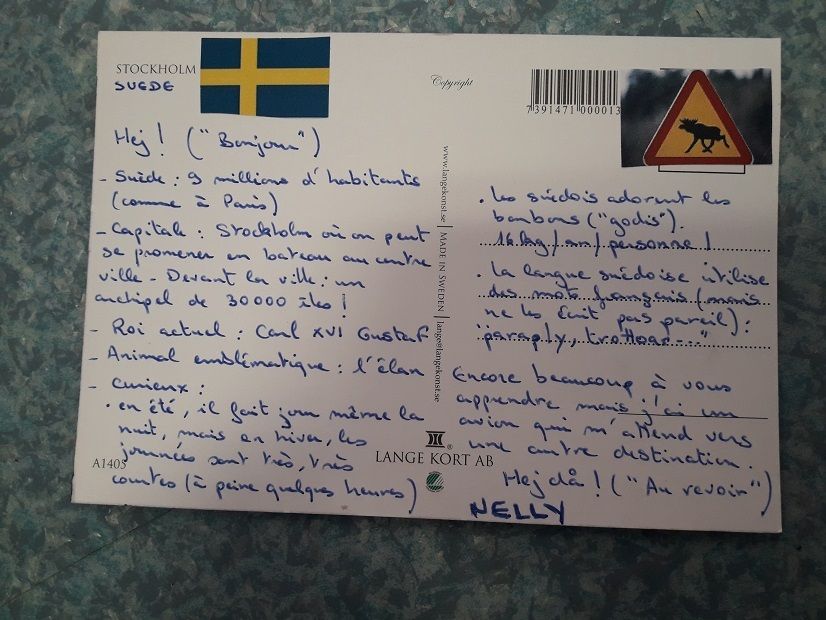 STOCKHOLM
SUEDE
Copyright
7391471000013
Hej ! ("Bonjour")
- Suède : 9 millions d'habitants
(comme à Paris)
- Capitale : Stockholm où on peut
se promener en bateau au centre
ville - Devant la ville : un
archipel de 30000 îles !
- Roi actuel : Carl XVI Gustaf
- Animal emblématique : l'élan
- Curieux :
• en été, il fait jour même la
nuit, mais en hiver, les
journées sont très, très
courtes (à peine quelques heures)
A1405
www.langekonst.se | MADE IN SWEDEN | lange@langekonst.se
LANGE KORT AB
®
• les suédois adorent les
bonbons ("godis").
16kg/an/personne !
• la langue suédoise utilise
des mots français (mais
ne les écrit pas pareil) :
"paraply, trottoar---"
Encore beaucoup à vous
apprendre mais j'ai un
avion qui m'attend vers
une autre destination.
Hej då ! ("Au revoir")
NELLY